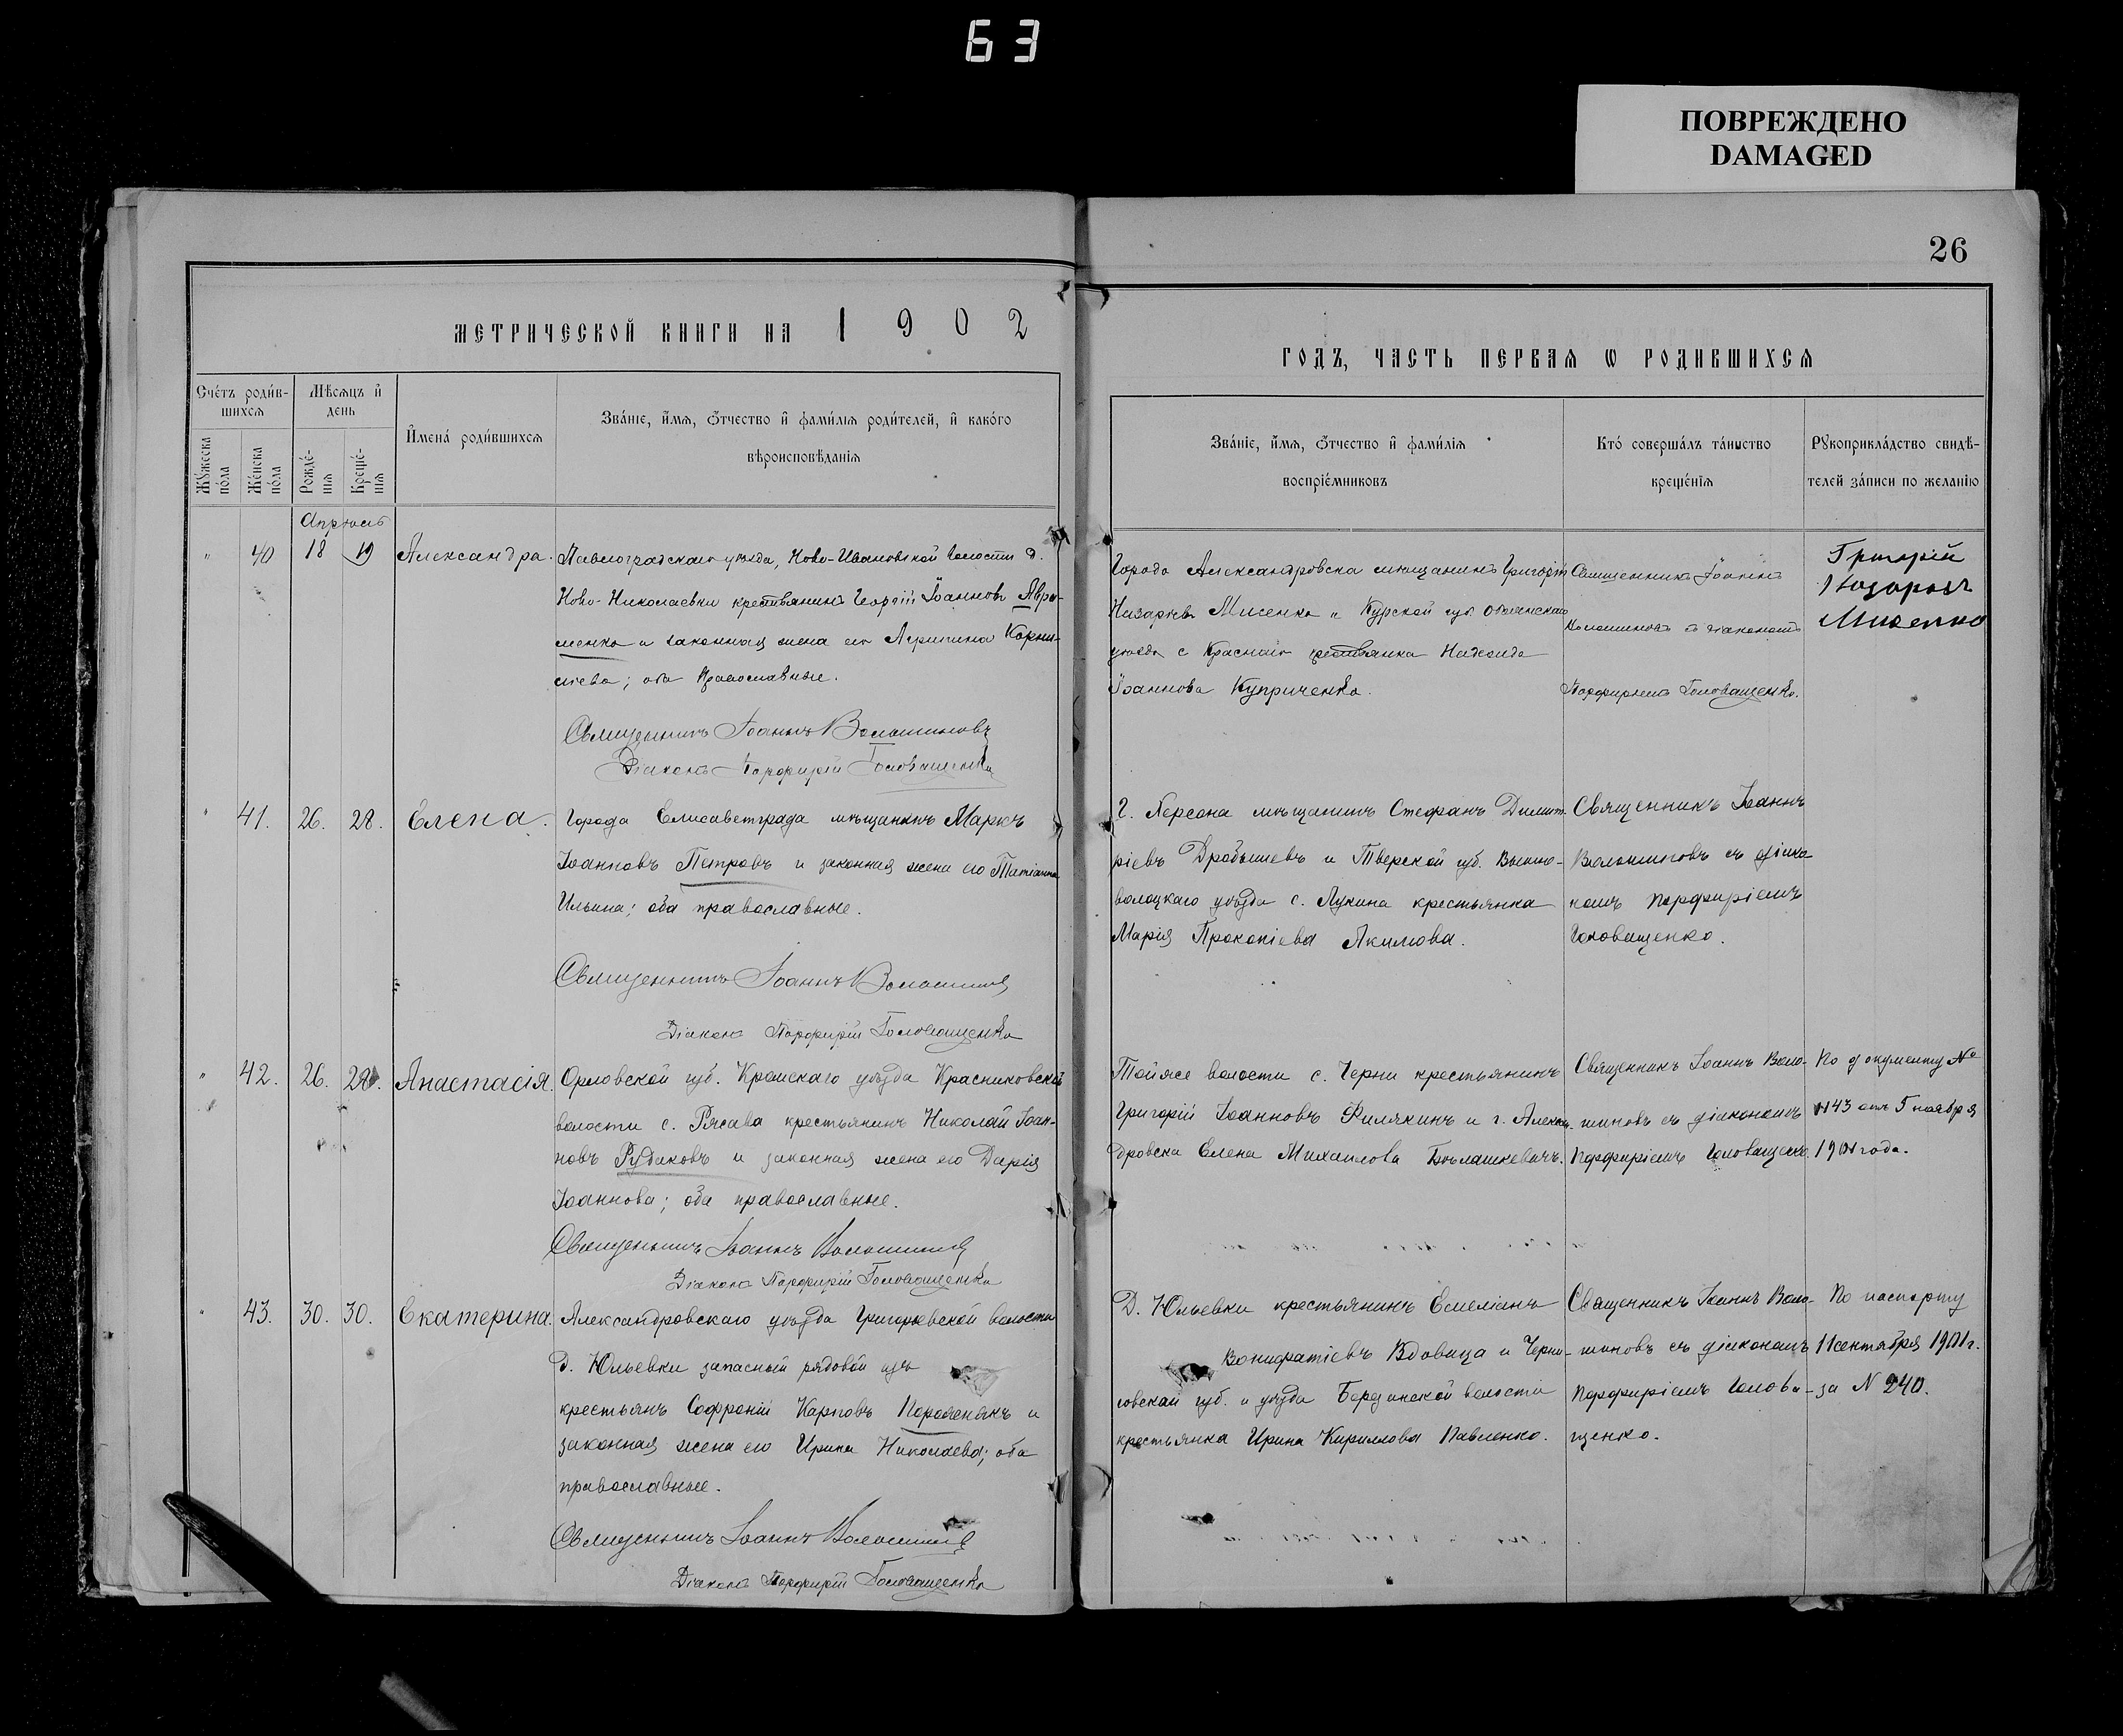 63
ПОВРЕЖДЕНО
DAMAGED
26
МЕТРИЧЕСКОЙ КНИГИ НА 1902
ГОДЪ, ЧАСТЬ ПЕРВАЯ Ѡ РОДИВШИХСЯ
Счетъ родив-
шихся
Мѣсяцъ и
день
Имена родившихся
Званіе, имя, отчество и фамилія родителей, и какого
вѣроисповѣданія
Мужеска
пола
Женска
пола
Рожде-
нія
Креще-
нія
Званіе, имя, отчество и фамилія
воспріемниковъ
Кто совершалъ таинство
крещенія
Рукоприкладство свидѣ-
телей записи по желанію
Апрѣль
" 40 18 19 Александра.
Павлоградскаго уѣзда, Ново-Ивановской волости д.
Ново-Николаевки крестьянинъ Георгій Іоанновъ Авра-
менко и законная жена его Агрипина Корни-
лiева; оба православные.
Священникъ Іоаннъ Волошиновъ
Діаконъ Порфирій Головащенко
Города Александровска мѣщанинъ Григорій
Назарьевъ Мисенко и Курской губ. Обоянскаго
уѣзда с. Краснаго крестьянка
Іоаннова Куприченко.
Священникъ Іоаннъ
Волошиновъ съ діакономъ
Порфиріемъ Головащенко.
Григорій
Мисенко
" 41. 26. 28. Елена.
Города Елисаветграда мѣщанинъ Маркъ
Іоанновъ Петровъ и законная жена его Татіанна
Ильина; оба православные.
Священникъ Іоаннъ Волошинов
Діаконъ Порфирій Головащенко
Г. Херсона мѣщанинъ Стефанъ Димит-
ріевъ Дробышевъ и Тверской губ. Вышне-
волоцкаго уѣзда с. Лукина крестьянка
Марія Прокопіева Акимова.
Священникъ Іоаннъ
Волошиновъ съ діако-
номъ Порфиріемъ
Головащенко.
" 42. 26. 28. Анастасія.
Орловской губ. Кромскаго уѣзда Красниковской
волости с. Рясава крестьянинъ Николай Іоан-
новъ Рудаковъ и законная жена его Дарія
Іоаннова; оба православные.
Священникъ Іоаннъ Волошинов
Діаконъ Порфирій Головащенко
Тойже волости с. Черни крестьянинъ
Григорій Іоанновъ Филякинъ и г. Алекса-
дровска Елена Михаилова Бѣлашкевичъ.
Священникъ Іоаннъ Воло-
шиновъ съ діакономъ
Порфиріемъ Головащенко.
По документу №
1143 отъ 5 ноября
1901 года.
" 43. 30. 30. Екатерина.
Александровскаго уѣзда Григорьевской волости
д. Юльевки запасный рядовой изъ
крестьянъ Софроній Карповъ и
законная жена его Ирина Николаева; оба
православные.
Священникъ Іоаннъ Волошинов
Діаконъ Порфирій Головащенко
Д. Юльевки крестьянинъ Емеліанъ
Вонифатіевъ Вдовица и Черни-
говской губ. и уѣзда волости
крестьянка Ирина Кириллова Павленко.
Священникъ Іоаннъ Воло-
шиновъ съ діакономъ
Порфиріемъ Голова-
щенко.
По паспорту
11 сентября 1901 г.
за N 240.